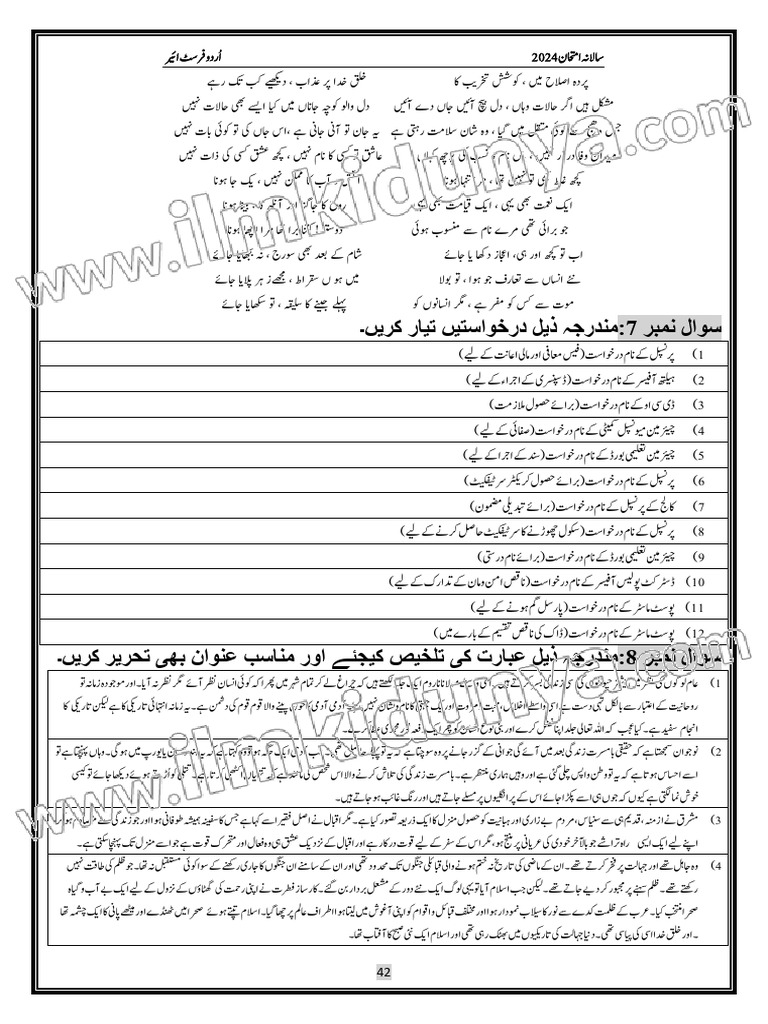 سالانہ امتحان 2024 اُردو فرسٹ ائیر
پردہ اصلاح میں ، کوشش تخریب کا خلق خدا پر عذاب ، دیکھیے کب تک رہے
مشکل ہیں اگر حالات وہاں ، دل بیچ آئیں جاں دے آئیں دل والو کوچہ جاناں میں کیا ایسے بھی حالات نہیں
جس دھج سے کوئی مقتل میں گیا ، وہ شان سلامت رہتی ہے یہ جان تو آنی جانی ہے ،اس جاں کی تو کوئی بات نہیں
میدان وفا دربار نہیں ، یاں نام و نسب کی پوچھ کہاں ، عاشق تو کسی کا نام نہیں ، کچھ عشق کسی کی ذات نہیں
کچھ غلط بھی تو نہیں تھا ، مرا تنہا ہونا آتش و آب کا ممکن نہیں ، یک جا ہونا
ایک نعمت بھی یہی ، ایک قیامت بھی یہی روح کا جاگنا اور آنکھ کا ، بینا ہونا
جو برائی تھی مرے نام سے منسوب ہوئی دوستو! کتنا برا تھا مرا اچھا ہونا
اب تو کچھ اور ہی، اعجاز دکھایا جائے شام کے بعد بھی سورج ، نہ بجھایا جائے
نئے انساں سے تعارف جو ہوا ، تو بولا میں ہوں سقراط ، مجھے زہر پلایا جائے
موت سے کس کو مفر ہے ، مگر انسانوں کو پہلے جینے کا سلیقہ ، تو سکھایا جائے
سوال نمبر 7:مندرجہ ذیل درخواستیں تیار کریں۔
1) پرنسپل کے نام درخواست (فیس معافی اور مالی اعانت کے لیے)
2) ہیلتھ آفیسر کے نام درخواست (ڈسپنسری کے اجراء کے لیے)
3) ڈی سی او کے نام درخواست (برائے حصول ملازمت)
4) چیئرمین میونسپل کمیٹی کے نام درخواست (صفائی کے لیے)
5) چیئرمین تعلیمی بورڈ کے نام درخواست (سند کے اجرا کے لیے)
6) پرنسپل کے نام درخواست (برائے حصول کریکٹر سرٹیفکیٹ)
7) کالج کے پرنسپل کے نام درخواست (برائے تبدیلی مضمون)
8) پرنسپل کے نام درخواست (سکول چھوڑنے کا سرٹیفکیٹ حاصل کرنے کے لیے)
9) چیئرمین تعلیمی بورڈ کے نام درخواست (برائے نام درستی)
10) ڈسٹرکٹ پولیس آفیسر کے نام درخواست (ناقص امن و مان کے تدارک کے لیے)
11) پوسٹ ماسٹر کے نام درخواست (پارسل گم ہونے کے لیے)
12) پوسٹ ماسٹر کے نام درخواست (ڈاک کی ناقص تقسیم کے بارے میں)
سوال نمبر 8:مندرجہ ذیل عبارت کی تلخیص کیجئے اور مناسب عنوان بھی تحریر کریں۔
1) عام لوگوں کی زندگی بسر کرتے ہیں۔ مولانا روم ایک جگہ لکھتے ہیں کہ چراغ لے کر تمام شہر میں پھرا کہ کوئی انسان نظر آئے مگر نظر نہ آیا۔ اور موجودہ زمانہ تو
روحانیت کے اعتبار سے بالکل تہی دست ہے اسی واسطے اخلاص ، محبت مروت اور یک جہتی کا نام و نشان نہیں رہا۔ آدمی آدمی کا خون پینے والا قوم قوم کی دشمن ہے۔ یہ زمانہ انتہائی تاریکی کا ہے لیکن تاریکی کا
انجام سفید ہے۔ کیا عجب کہ اللہ تعالیٰ جلد اپنا فضل کرے اور بنی نوع انسان کو پھر ایک دفعہ نور محمدی عطا کرے۔
2) نوجوان سمجھتا ہے کہ حقیقی با مسرت زندگی بعد میں آئے گی جوانی کے گزر جانے پر وہ سوچتا ہے کہ یہ تو پہلے حاصل تھی۔ جب آدمی ایک جگہ ہو تو وہ کہتا ہے کہ یہ ہندوستان یا یورپ میں ہوگی۔ وہاں پہنچتا ہے تو
اسے احساس ہوتا ہے کہ یہ تو وطن واپس چلی گئی ہے اور وہیں ہماری منتظر ہے۔ با مسرت زندگی کی تلاش کرنے والا اس شخص کی مانند ہے کہ تتلیاں اکٹھی کرتا ہے۔ تتلی کو اڑتے ہوئے دیکھا جائے تو کیسی
خوش نما لگتی ہے کیوں کہ جوں ہی اسے پکڑا جائے اس کے پر انگلیوں پر مسلے جاتے ہیں اور رنگ غائب ہو جاتے ہیں۔
3) مشرق نے ازمنہ ،قدیم ہی سے سنیاس ،مردم بے زاری اور رہبانیت کو حصول خدا کا ایک ذریعہ تصور کیا ہے۔ مگر اقبال نے اصل فقیر اسے کہا ہے جس کا سفینہ ہمیشہ طوفانی ہو اور جو زندگی سے متصادم ہو کر
اپنے لیے ایسی راہ تراشے جو بالآخر خودی کی عریانی پر منتج ہو، مگر اس کے سفر کے لیے قوت درکار ہے اور اقبال کے نزدیک عشق ہی وہ فعال اور متحرک قوت ہے جو اسے منزل تک پہنچا سکتی ہے۔
4) وہ جاہل تھے اور جہالت پر فخر کرتے تھے۔ ان کے ماضی کی تاریخ نہ ختم ہونے والی قبائلی جنگوں تک محدود تھی اور ان کے سامنے ان جنگوں کا جاری رکھنے کے سوا کوئی مستقبل نہ تھا۔ جو ظلم کی طاقت نہیں
رکھتے تھے۔ ظلم سہنے پر مجبور کر دیے جاتے تھے۔ لیکن جب اسلام آیا تو یہی لوگ ایک نئے دور کے مشعل بردار بن گئے۔ کار ساز فطرت نے اپنی رحمت کی گھٹاؤں کے نزول کے لیے ایک بے آب و گیاہ
صحرا منتخب کیا۔ عرب کے ظلمت کدے سے نور کا سیلاب نمودار ہوا اور مختلف قبائل و اقوام کو اپنی آغوش میں لیتا ہوا اطراف عالم پر چھا گیا۔ اسلام تپتے ہوئے صحرا میں ٹھنڈے اور میٹھے پانی کا ایک چشمہ تھا
۔اور خلق خدا اسی کی پیاسی تھی۔ دنیا جہالت کی تاریکیوں میں بھٹک رہی تھی اور اسلام ایک نئی صبح کا آفتاب تھا۔
42
www.ilmkidunya.com
www.ilmkidunya.com